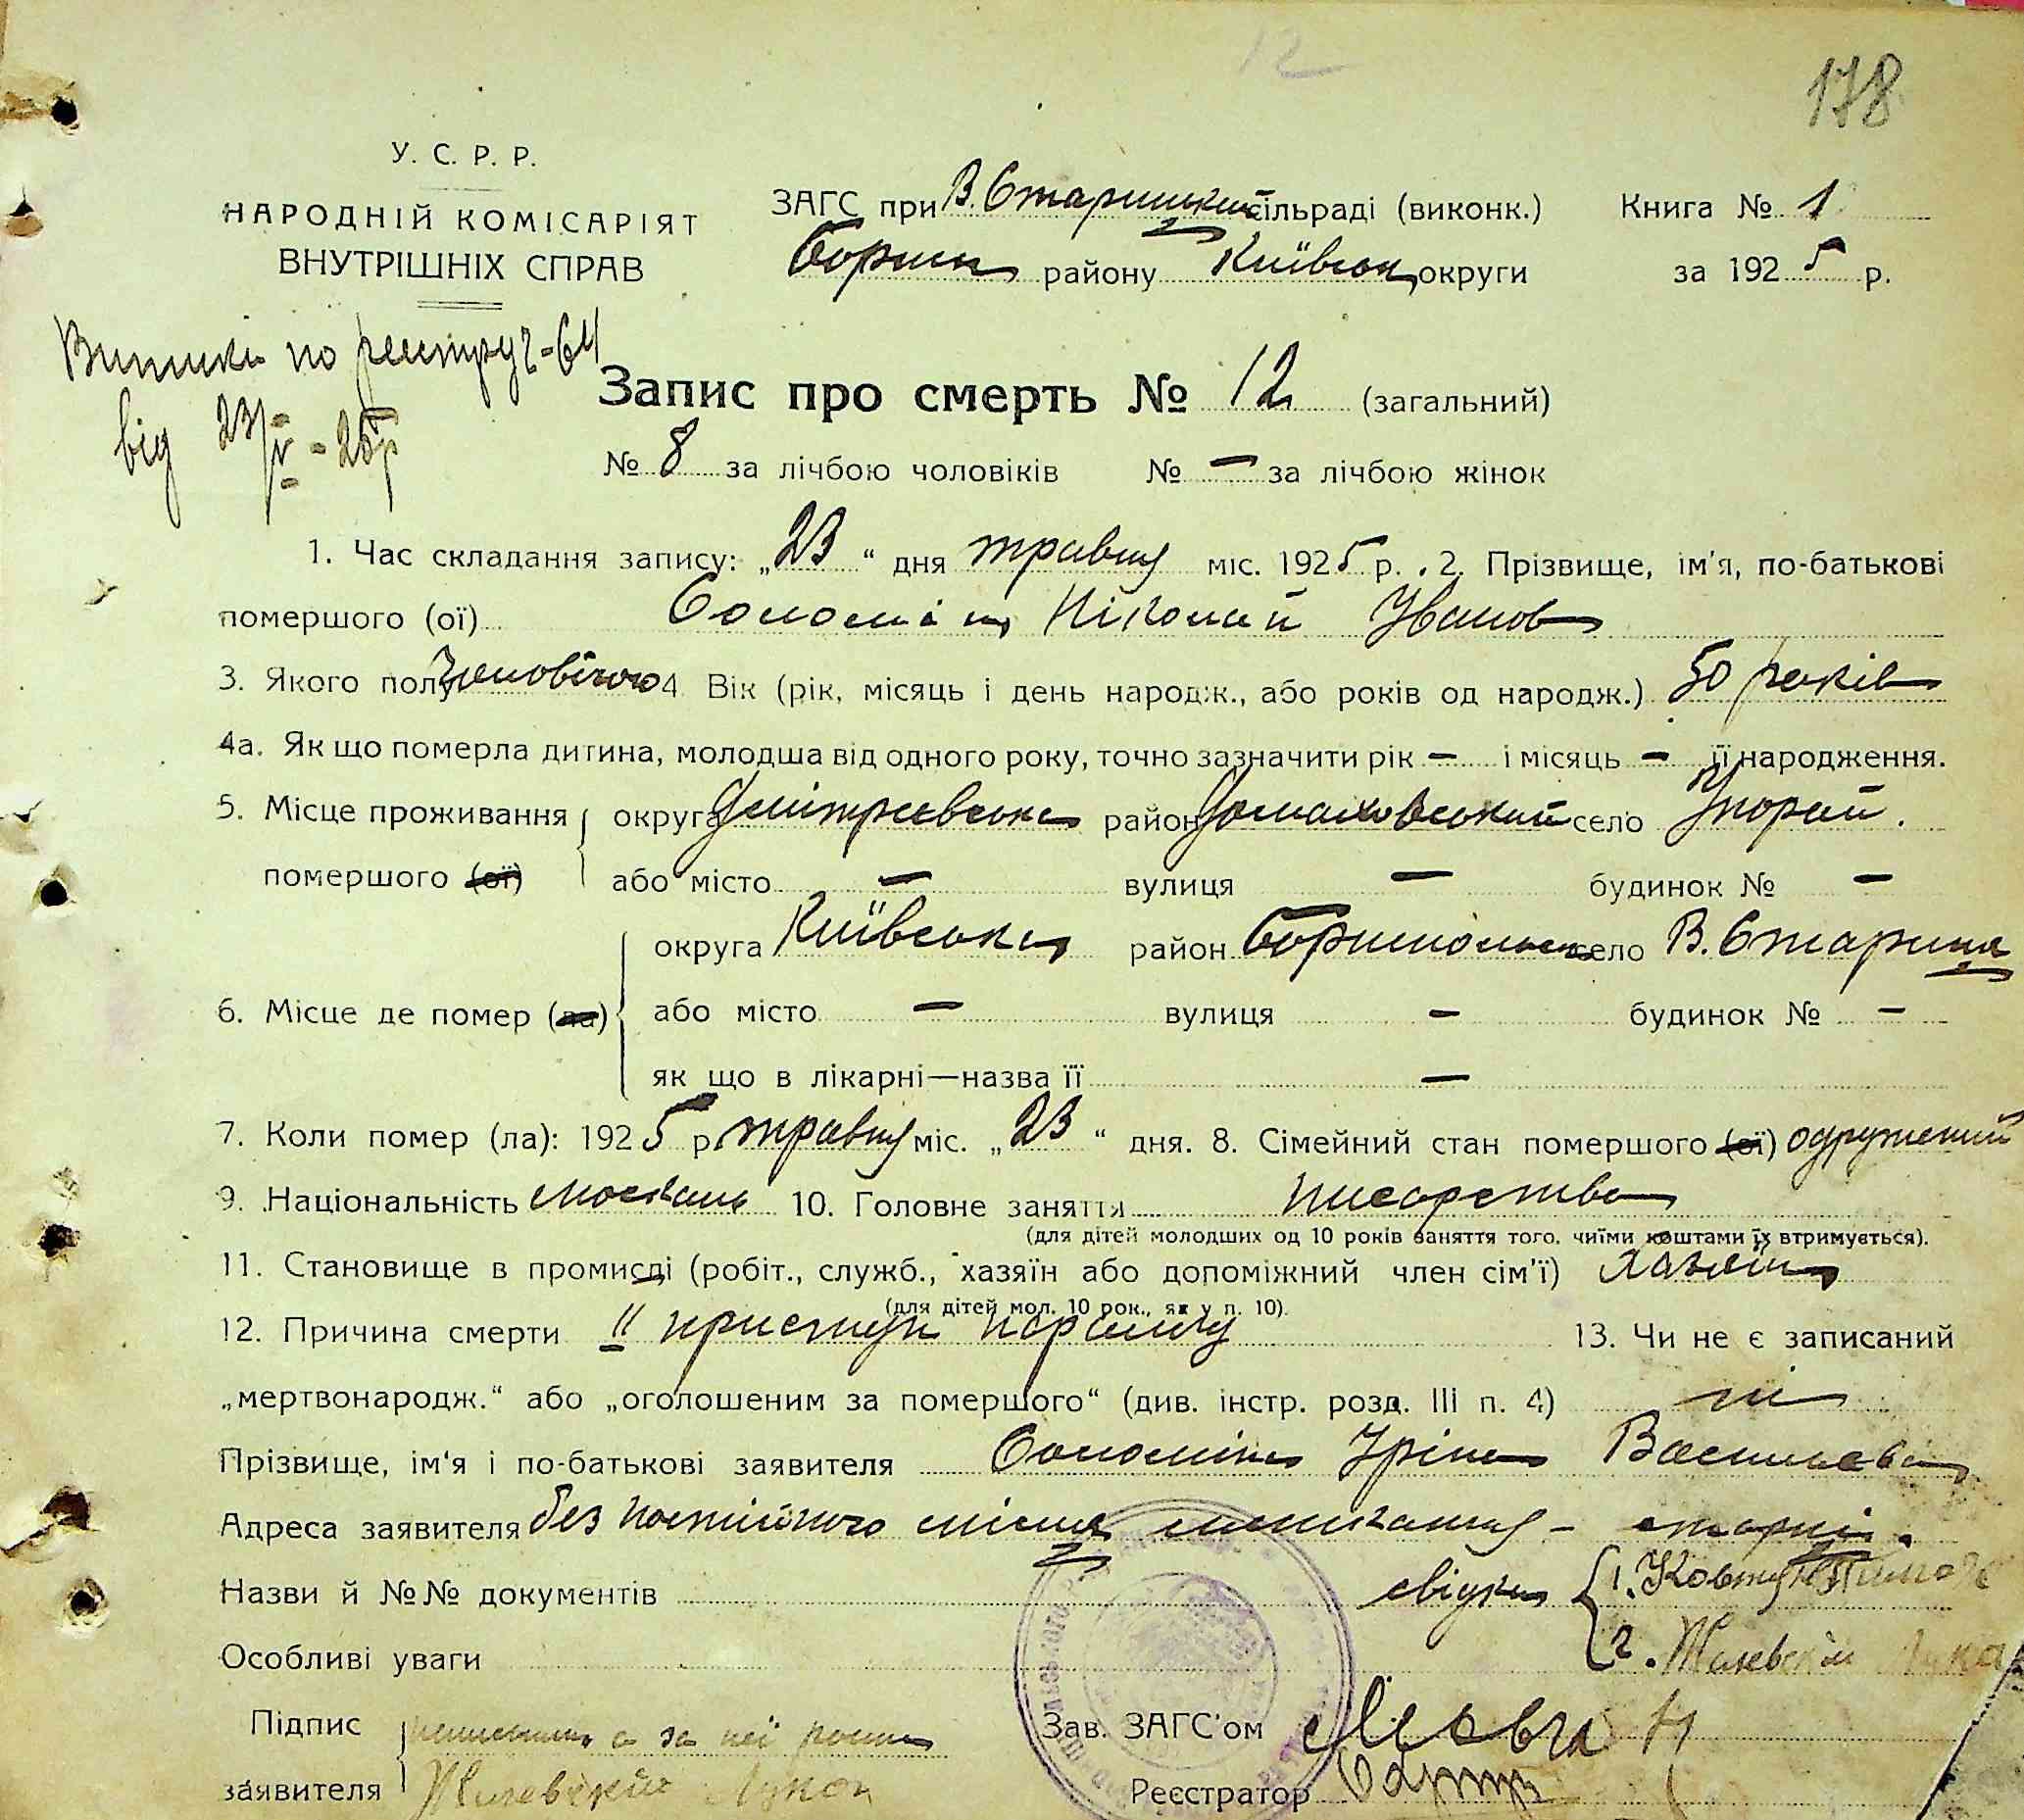 12
178
У. С. Р. Р.
НАРОДНІЙ КОМІСАРІЯТ
ВНУТРІШНІХ СПРАВ
ЗАГС при В. Старицькій сільраді (виконк.) Книга № 1
Борисп району Київськ округи за 1925 р.
Виписка по реєстру 2-64
від 23/V - 25р
Запис про смерть № 12 (загальний)
№ 8 за лічбою чоловіків № — за лічбою жінок
1. Час складання запису: „23“ дня травня міс. 1925 р. 2. Прізвище, ім'я, по-батькові
помершого (ої) Соломін Ніколай Іванов
3. Якого полу чоловічого 4. Вік (рік, місяць і день народж., або років од народж.) 50 років
4а. Як що померла дитина, молодша від одного року, точно зазначити рік — і місяць — її народження.
5. Місце проживання округа Дмітрієвська район село Упорой.
помершого (ої) або місто — вулиця — будинок № —
округа Київська район Бориспольськ село В. Стариця
6. Місце де помер (ла) або місто — вулиця — будинок № —
як що в лікарні—назва її —
7. Коли помер (ла): 1925 р. травня міс. „23“ дня. 8. Сімейний стан помершого (ої) одружений
9. Національність москаль 10. Головне заняття писарства
(для дітей молодших од 10 років заняття того, чиїми коштами їх втримується).
11. Становище в промислі (робіт., служб., хазяїн або допоміжний член сім'ї) хазяїн
(для дітей мол. 10 рок., як у п. 10).
12. Причина смерти II приступ параличу 13. Чи не є записаний
„мертвонародж.“ або „оголошеним за помершого“ (див. інстр. розд. III п. 4) ні
Прізвище, ім'я і по-батькові заявителя Соломіна Іріна Васильевна
Адреса заявителя без постійного місця мешкання - старці.
Назви й №№ документів свідки 1. Ковтун
Особливі уваги 2. Жилевский Лука
Підпис неписьмена а за неї росп
Зав. ЗАГС'ом Мовча
заявителя Жилевский Лукон
Реєстратор